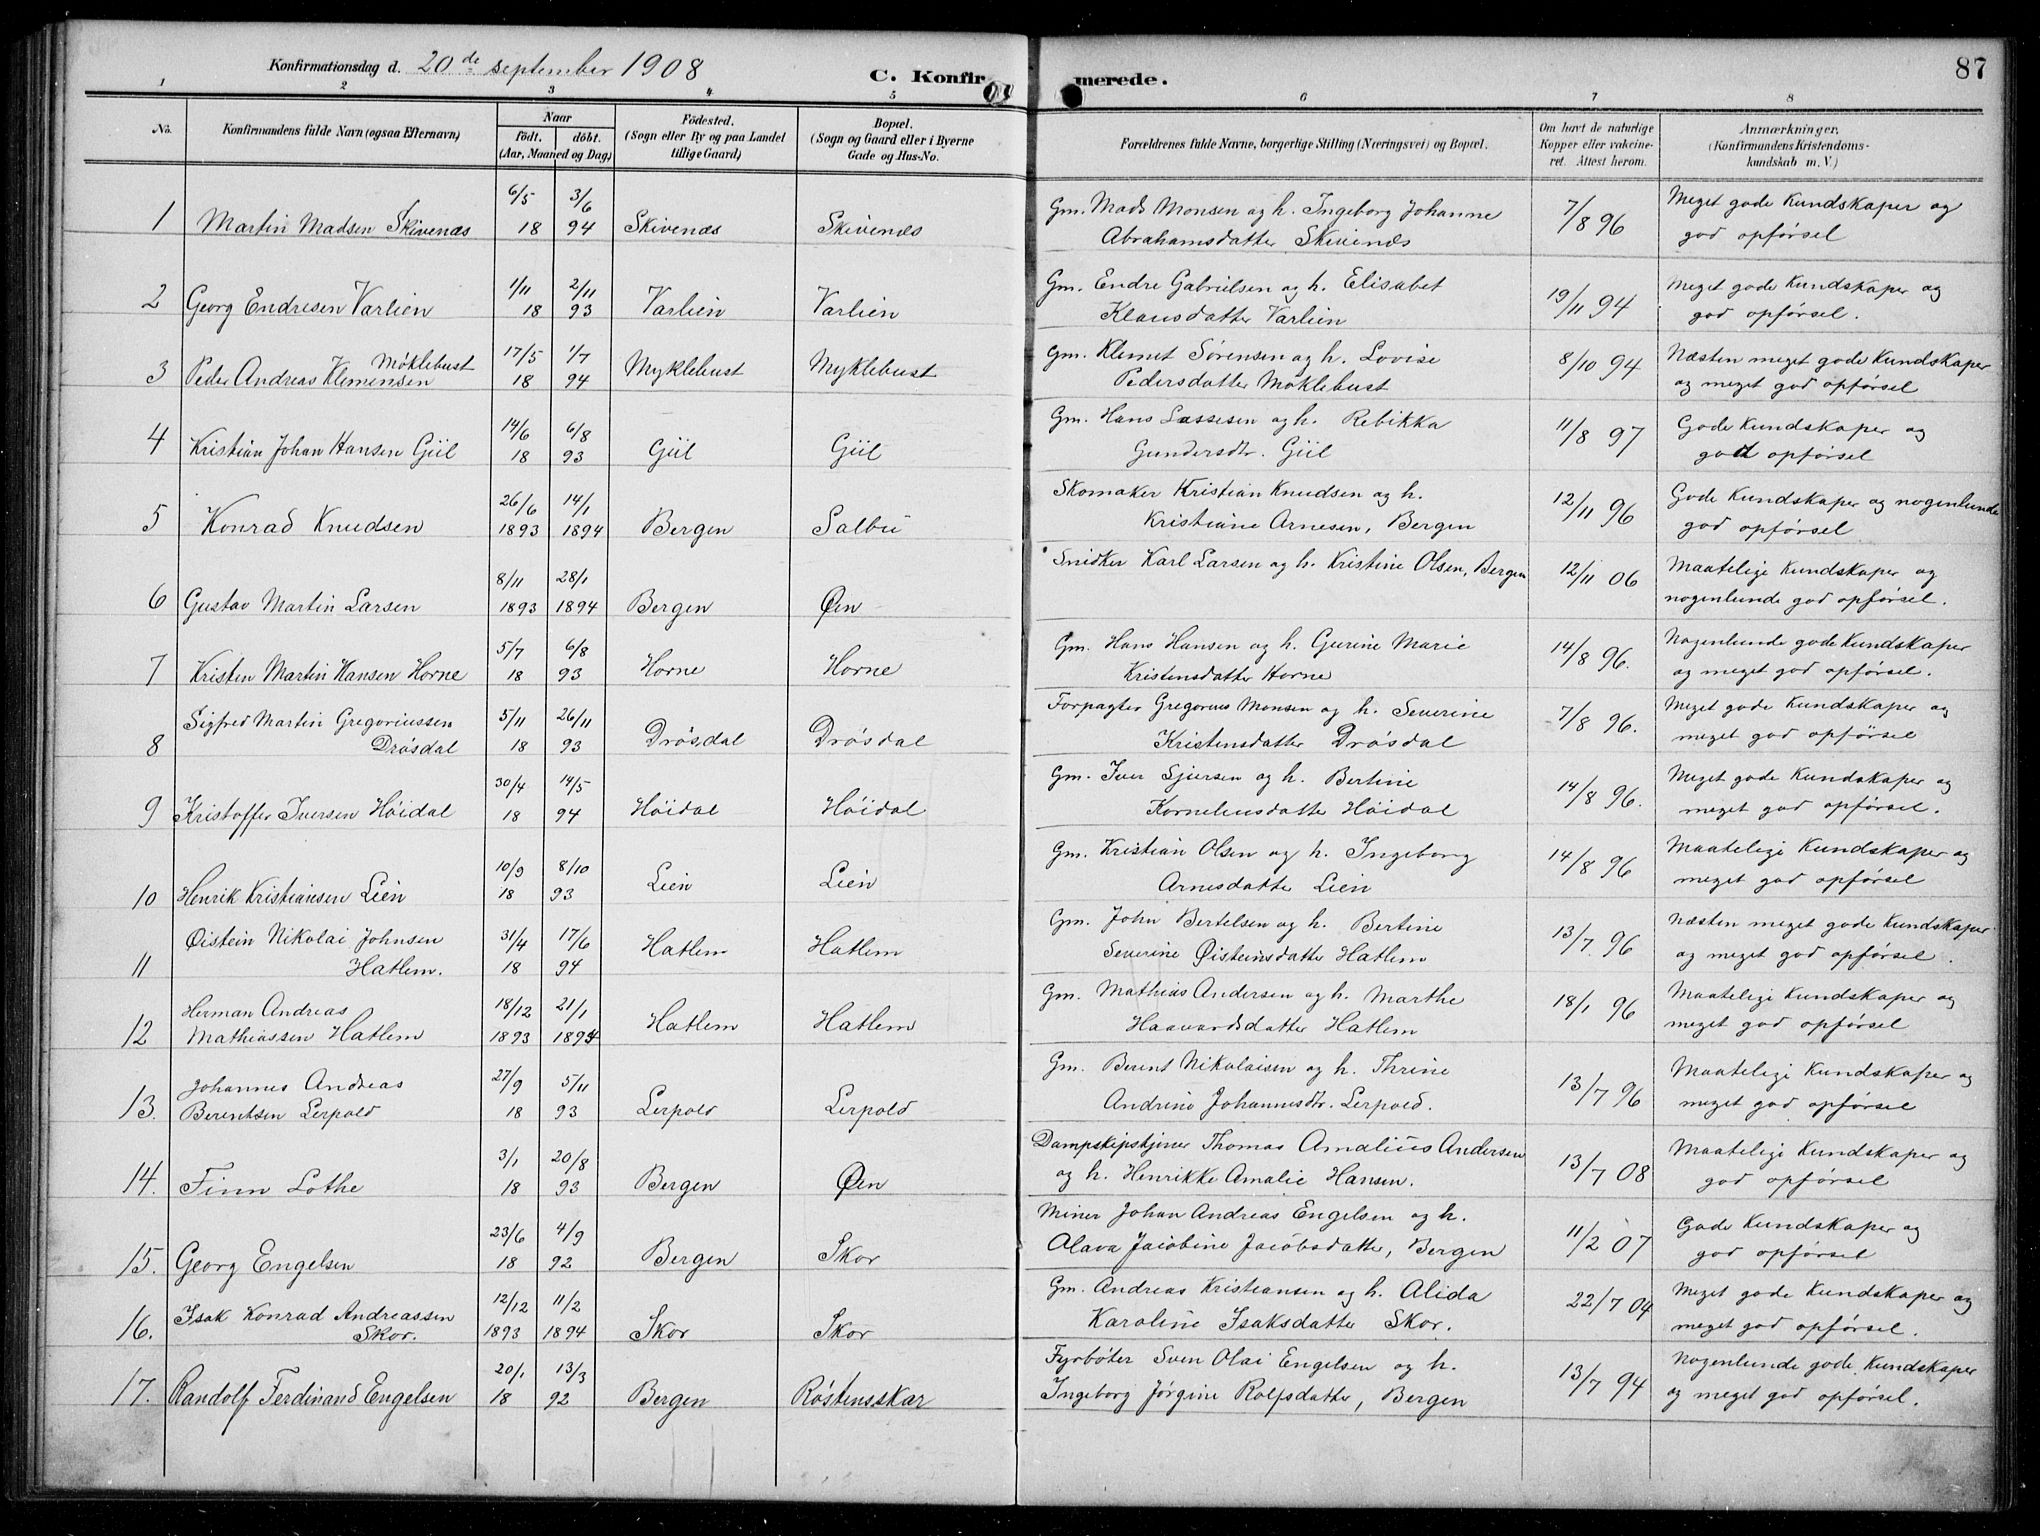 Konfirmationsdag d. 20de september 1908
C. Konfirmerede.
87
1 2 3 4 5 6 7 8
No. Konfirmandens fulde Navn (ogsaa Efternavn) Naar født. døbt. (Aar, Maaned og Dag) Fødested. (Sogn eller By og paa Landet tillige Gaard) Bopæl. (Sogn og Gaard eller i Byerne Gade og Hus-No. Forældrenes fulde Navne, borgerlige Stilling (Næringsvei) og Bopæl. Om havt de naturlige Kopper eller vakcineret. Attest herom. Anmærkninger. (Konfirmandens Kristendomskundskab m. V.)
1 Martin Madsen Skivenæs 6/5 18 3/6 94 Skivenæs Skivenæs Gm. Mads Monsen og h. Ingeborg Johanne Abrahamsdatter Skivenæs 7/8 96 Meget gode Kundskaper og god opførsel
2 Georg Endresen Varlien 1/11 18 2/11 93 Varlien Varlien Gm. Endre Gabrielsen og h. Elisabet Klausdatter Varlien 19/11 94 Meget gode Kundskaper og god opførsel.
3 Peder Andreas Klemensen Møklebust 17/5 18 1/7 94 Myklebust Myklebust Gm. Klemet Sørensen og h. Lovise Pedersdatter Møklebust 8/10 94 Næsten meget gode Kundskaper og meget god opførsel
4 Kristian Johan Hansen Giil 14/6 18 6/8 93 Giil Giil Gm. Hans Lassesen og h. Rebikka Gundersdtr. Giil 11/8 97 Gode Kundskaper og god opførsel
5 Konrad Knudsen 26/6 1893 14/1 1894 Bergen Salbu Skomaker Kristian Knudsen og h. Kristiane Arnesen, Bergen 12/11 96 Gode Kundskaper og nogenlunde god opførsel
6 Gustav Martin Larsen 8/11 1893 28/1 1894 Bergen Øen Snidker Karl Larsen og h. Kristine Olsen, Bergen 12/11 06 Maatelige Kundskaper og nogenlunde god opførsel.
7 Kristen Martin Hansen Horne 5/7 18 6/8 93 Horne Horne Gm. Hans Hansen og h. Gurine Marie Kristensdatter Horne 14/8 96. Nogenlunde gode Kundskaper og meget god opførsel.
8 Sigfred Martin Gregoriussen Drøsdal 5/11 18 26/11 93 Drøsdal Drøsdal Forpagter Gregorius Monsen og h. Severine Kristensdatter Drøsdal 7/8 96. Meget gode Kundskaper og meget god opførsel
9 Kristoffer Iversen Høidal 30/4 18 14/5 94 Høidal Høidal Gm. Iver Sjursen og h. Bertine Korneliusdatter Høidal 14/8 96. Meget gode Kundskaper og meget god opførsel.
10 Henrik Kristiansen Lien 10/9 18 8/10 93 Lien Lien Gm. Kristian Olsen og h. Ingeborg Arnesdatter Lien 14/8 96 Maatelige Kundskaper og meget god opførsel
11 Øistein Nikolai Johnsen Hatlem. 31/4 18 17/6 94 Hatlem Hatlem Gm. John Bertelsen og h. Bertine Severine Øisteinsdatter Hatlem 13/7 96 Næsten meget gode Kundskaper og meget god opførsel.
12 Herman Andreas Mathiassen Hatlem 18/12 1893 21/1 1894 Hatlem Hatlem Gm. Mathias Andersen og h. Marthe Haavardsdatter Hatlem 18/1 96 Maatelige Kundskaper og meget god opførsel
13. Johannes Andreas Berentsen Lerpold 27/9 18 5/11 93 Lerpold Lerpold Gm. Berent Nikolaisen og h. Thrine Andrine Johannesdtr. Lerpold. 13/7 96 Maatelige Kundskaper og meget god opførsel
14. Finn Lothe 3/1 18 20/8 93 Bergen Øen Dampskipstjener Thomas Amalius Andersen og h. Henrikke Amalie Hansen. 13/7 08 Maatelige Kundskaper og god opførsel
15. Georg Engelsen 23/6 18 4/9 92 Bergen Skor Miner Johan Andreas Engelsen og h. Olava Jacobine Jacobsdatter, Bergen 11/2 07 Gode Kundskaper og god opførsel
16. Isak Konrad Andreassen Skor. 12/12 1893 11/2 1894 Skor Skor Gm. Andreas Kristiansen og h. Alida Karoline Isaksdatter Skor. 22/7 04 Meget gode Kundskaper og meget god opførsel.
17. Randolf Ferdinand Engelsen 20/1 18 13/3 92 Bergen Røstensskar Fyrbøter Sven Olai Engelsen og h. Ingeborg Jørgine Rolfsdatter, Bergen 13/7 94 Nogenlunde gode Kundskaper og meget god opførsel.